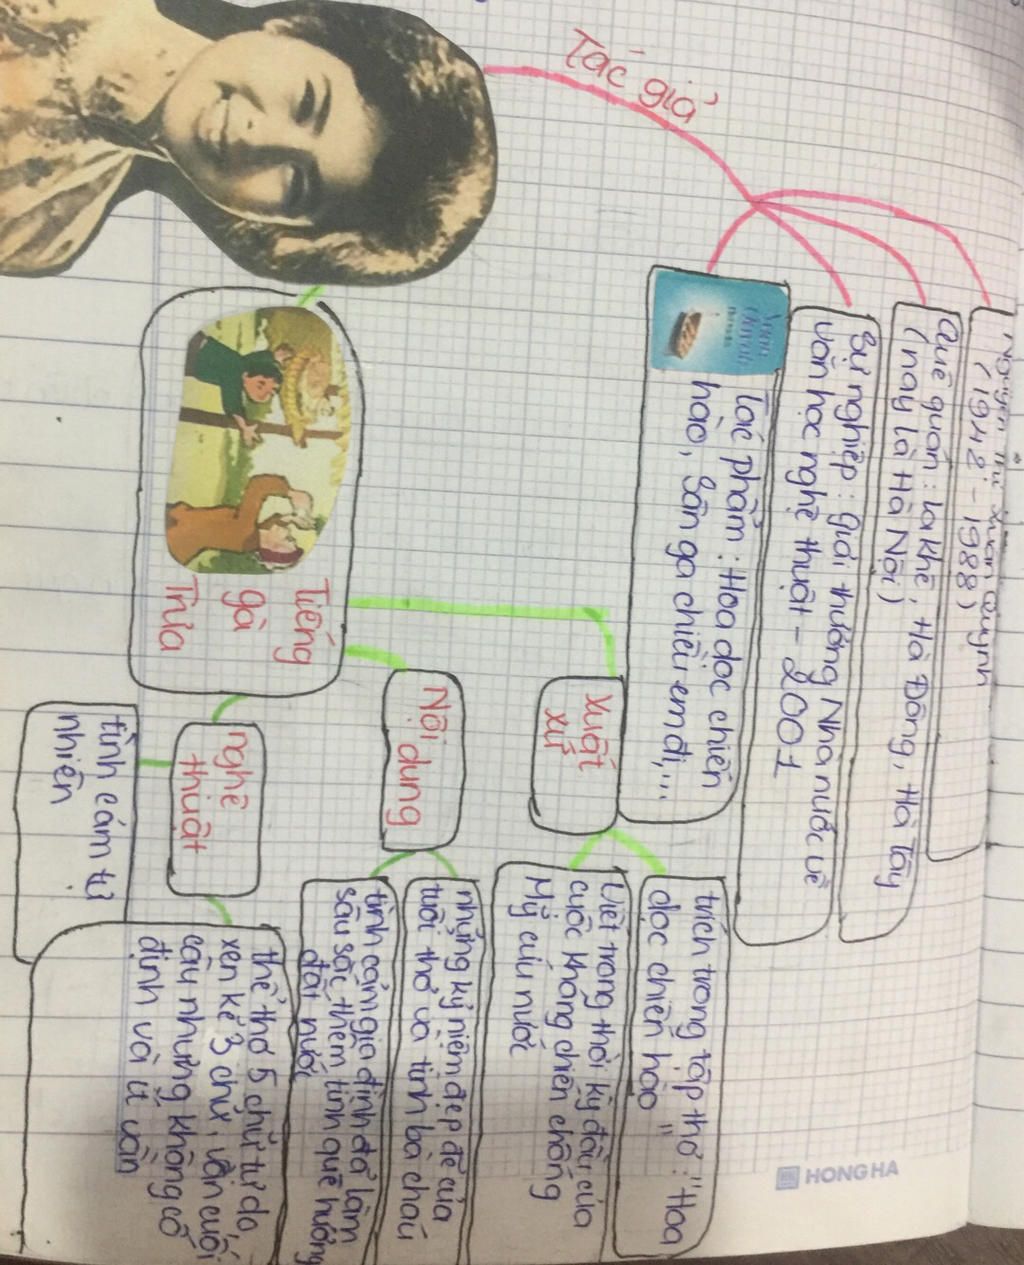 Tác giả
Nguyễn Thị Xuân Quỳnh
(1942 - 1988)
Quê quán : La Khê, Hà Đông, Hà Tây
(nay là Hà Nội)
Sự nghiệp : giải thưởng Nhà nước về
văn học nghệ thuật - 2001
Tác phẩm : Hoa dọc chiến
hào, Sân ga chiều em đi,...
Xuất
xứ
trích trong tập thơ : "Hoa
dọc chiến hào"
Viết trong thời kỳ đầu của
cuộc kháng chiến chống
Mỹ cứu nước
Nội dung
những kỷ niệm đẹp đẽ của
tuổi thơ và tình bà cháu
tình cảm gia đình đã làm
sâu sắc thêm tình quê hương
đất nước
Tiếng
gà
Trưa
nghệ
thuật
thể thơ 5 chữ tự do,
xen kẽ 3 chữ, vần cuối
câu nhưng không cố
định và ít vần
tình cảm tự
nhiên
HONG HA